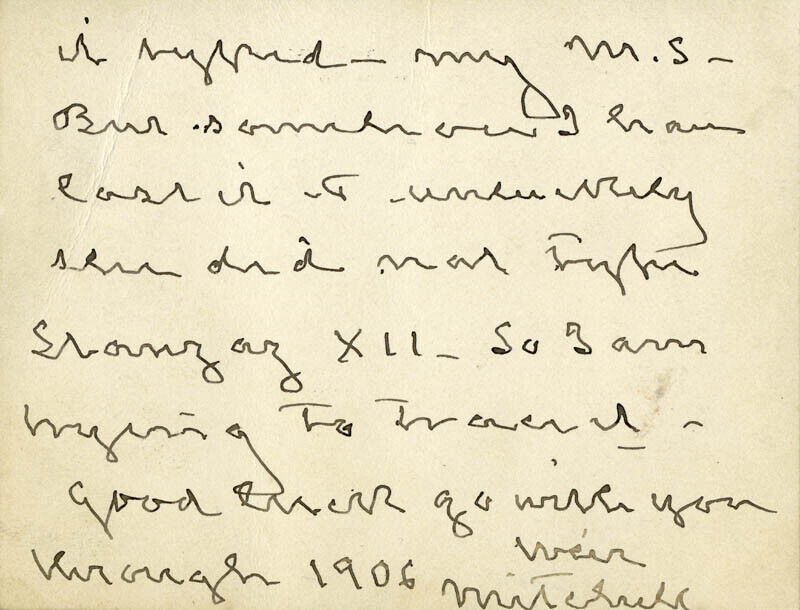 it typed - my M.S -
But somehow I have
lost it & unluckily
she did not type
Stanzas XII - So I am
trying to trace it -
Good luck go with you
through 1906 Weir
Mitchell